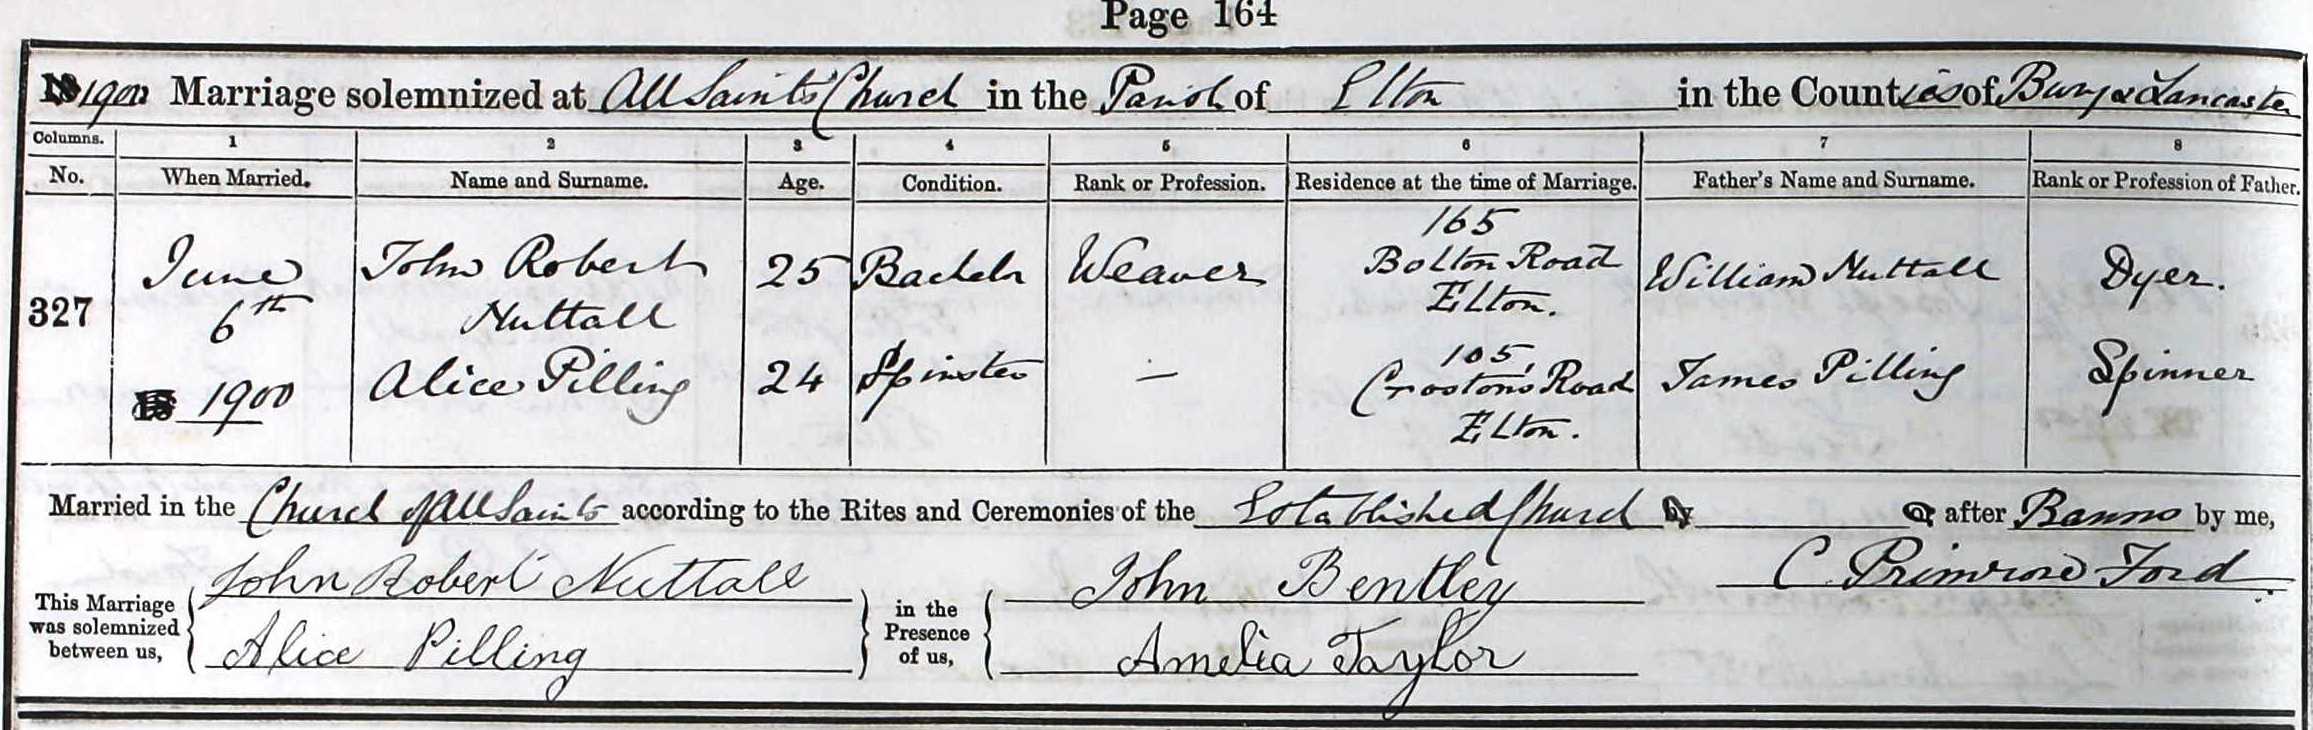 Page 164
18 1900 Marriage solemnized at All Saints Church in the Parish of Elton in the Counties of Bury & Lancaster
Columns. 1 2 3 4 5 6 7 8
No. When Married. Name and Surname. Age. Condition. Rank or Profession. Residence at the time of Marriage. Father's Name and Surname. Rank or Profession of Father.
327 June 6th 18 1900
John Robert Nuttall 25 Bachelr Weaver 165 Bolton Road Elton. William Nuttall Dyer.
Alice Pilling 24 Spinster — 105, Crostons Road Elton. James Pilling Spinner
Married in the Church of All Saints according to the Rites and Ceremonies of the Established Church by or after Banns by me,
This Marriage was solemnized between us,
John Robert Nuttall
Alice Pilling
in the Presence of us,
John Bentley
Amelia Taylor
C. Primrose Ford